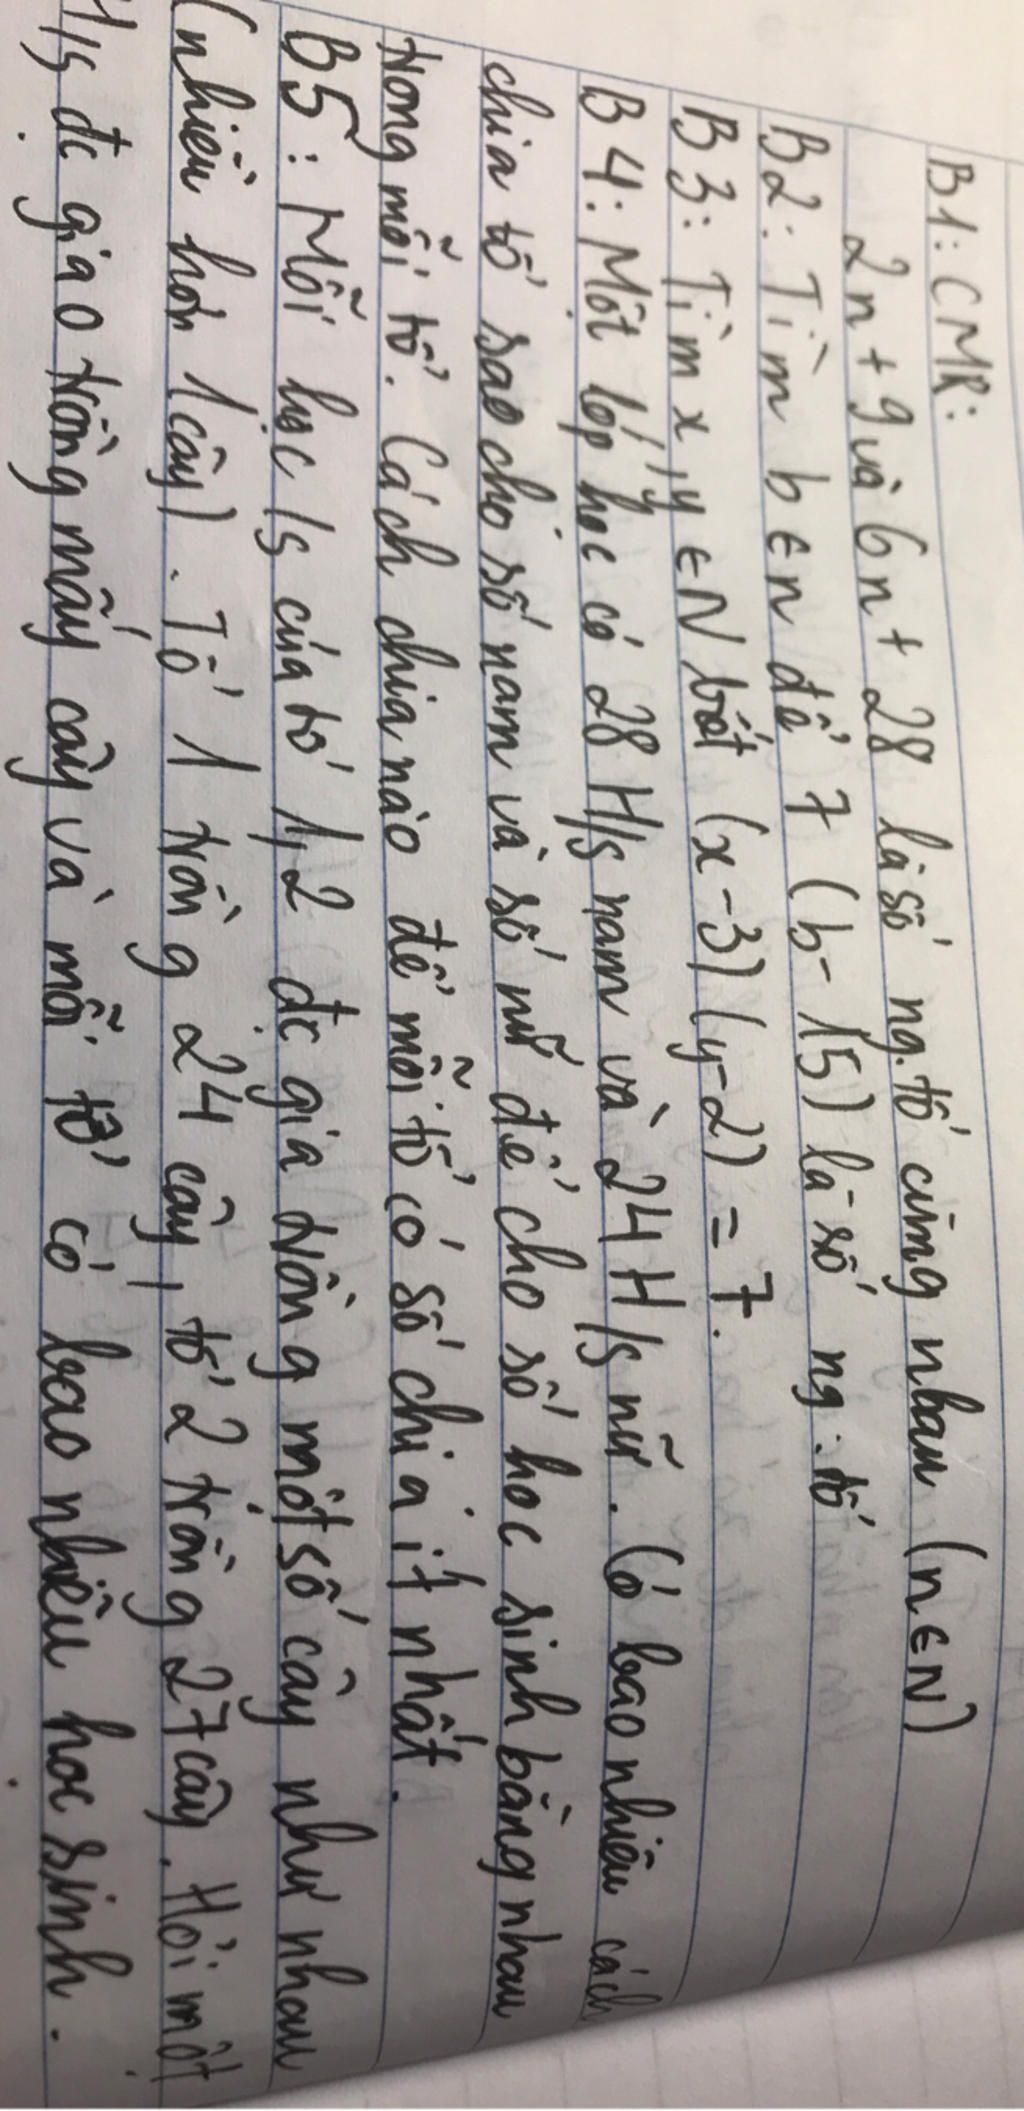 B1: CMR:
2n + 9 và 6n + 28 là số ng.tố cùng nhau (n ∈ N)
B2: Tìm b ∈ n để 7 (b - 15) là số ng.tố
B3: Tìm x, y ∈ N biết (x - 3) (y - 2) = 7.
B4: Một lớp học có 28 H/s nam và 24 H/s nữ. Có bao nhiêu cách
chia tổ sao cho số nam và số nữ để cho số học sinh bằng nhau
trong mỗi tổ. Cách chia nào để mỗi tổ có số chia ít nhất.
B5: Mỗi học /s của tổ 1,2 đc gia trồng một số cây như nhau
(nhiều hơn 1 cây). Tổ 1 trồng 24 cây, tổ 2 trồng 27 cây. Hỏi một
H/s đc giao trồng mấy cây và mỗi tổ có bao nhiêu học sinh.